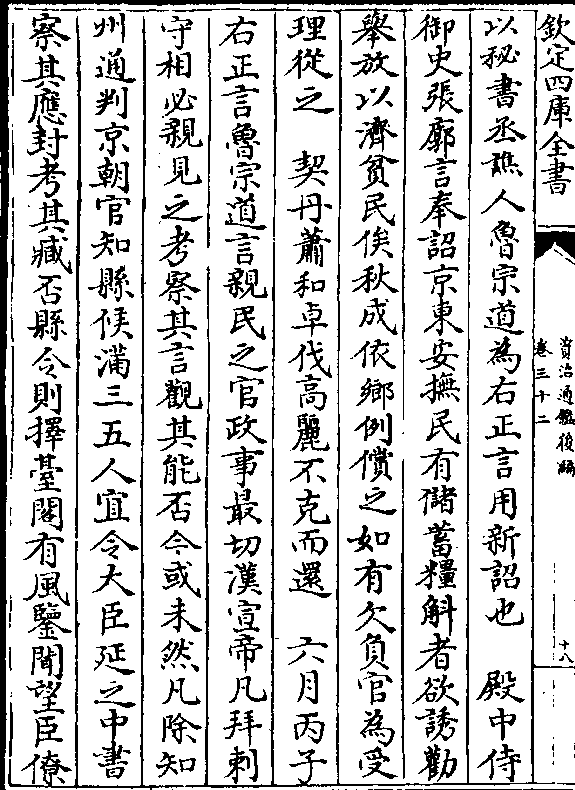 欽定四庫全書
資治通鑑後編
卷三十二
十八
以秘書丞譙人魯宗道為右正言用新詔也　殿中侍
御史張廓言奉詔京東安撫民有儲蓄糧斛者欲誘勸
舉放以濟貧民俟秋成依鄉例償之如有欠負官為受
理從之　契丹蕭和卓伐高麗不克而還　六月丙子
右正言魯宗道言親民之官政事最切漢宣帝凡拜刺
守相必親見之考察其言觀其能否今或未然凡除知
州通判京朝官知縣候滿三五人宜令大臣延之中書
察其應封考其臧否縣令則擇臺閣有風鑒聞望臣僚